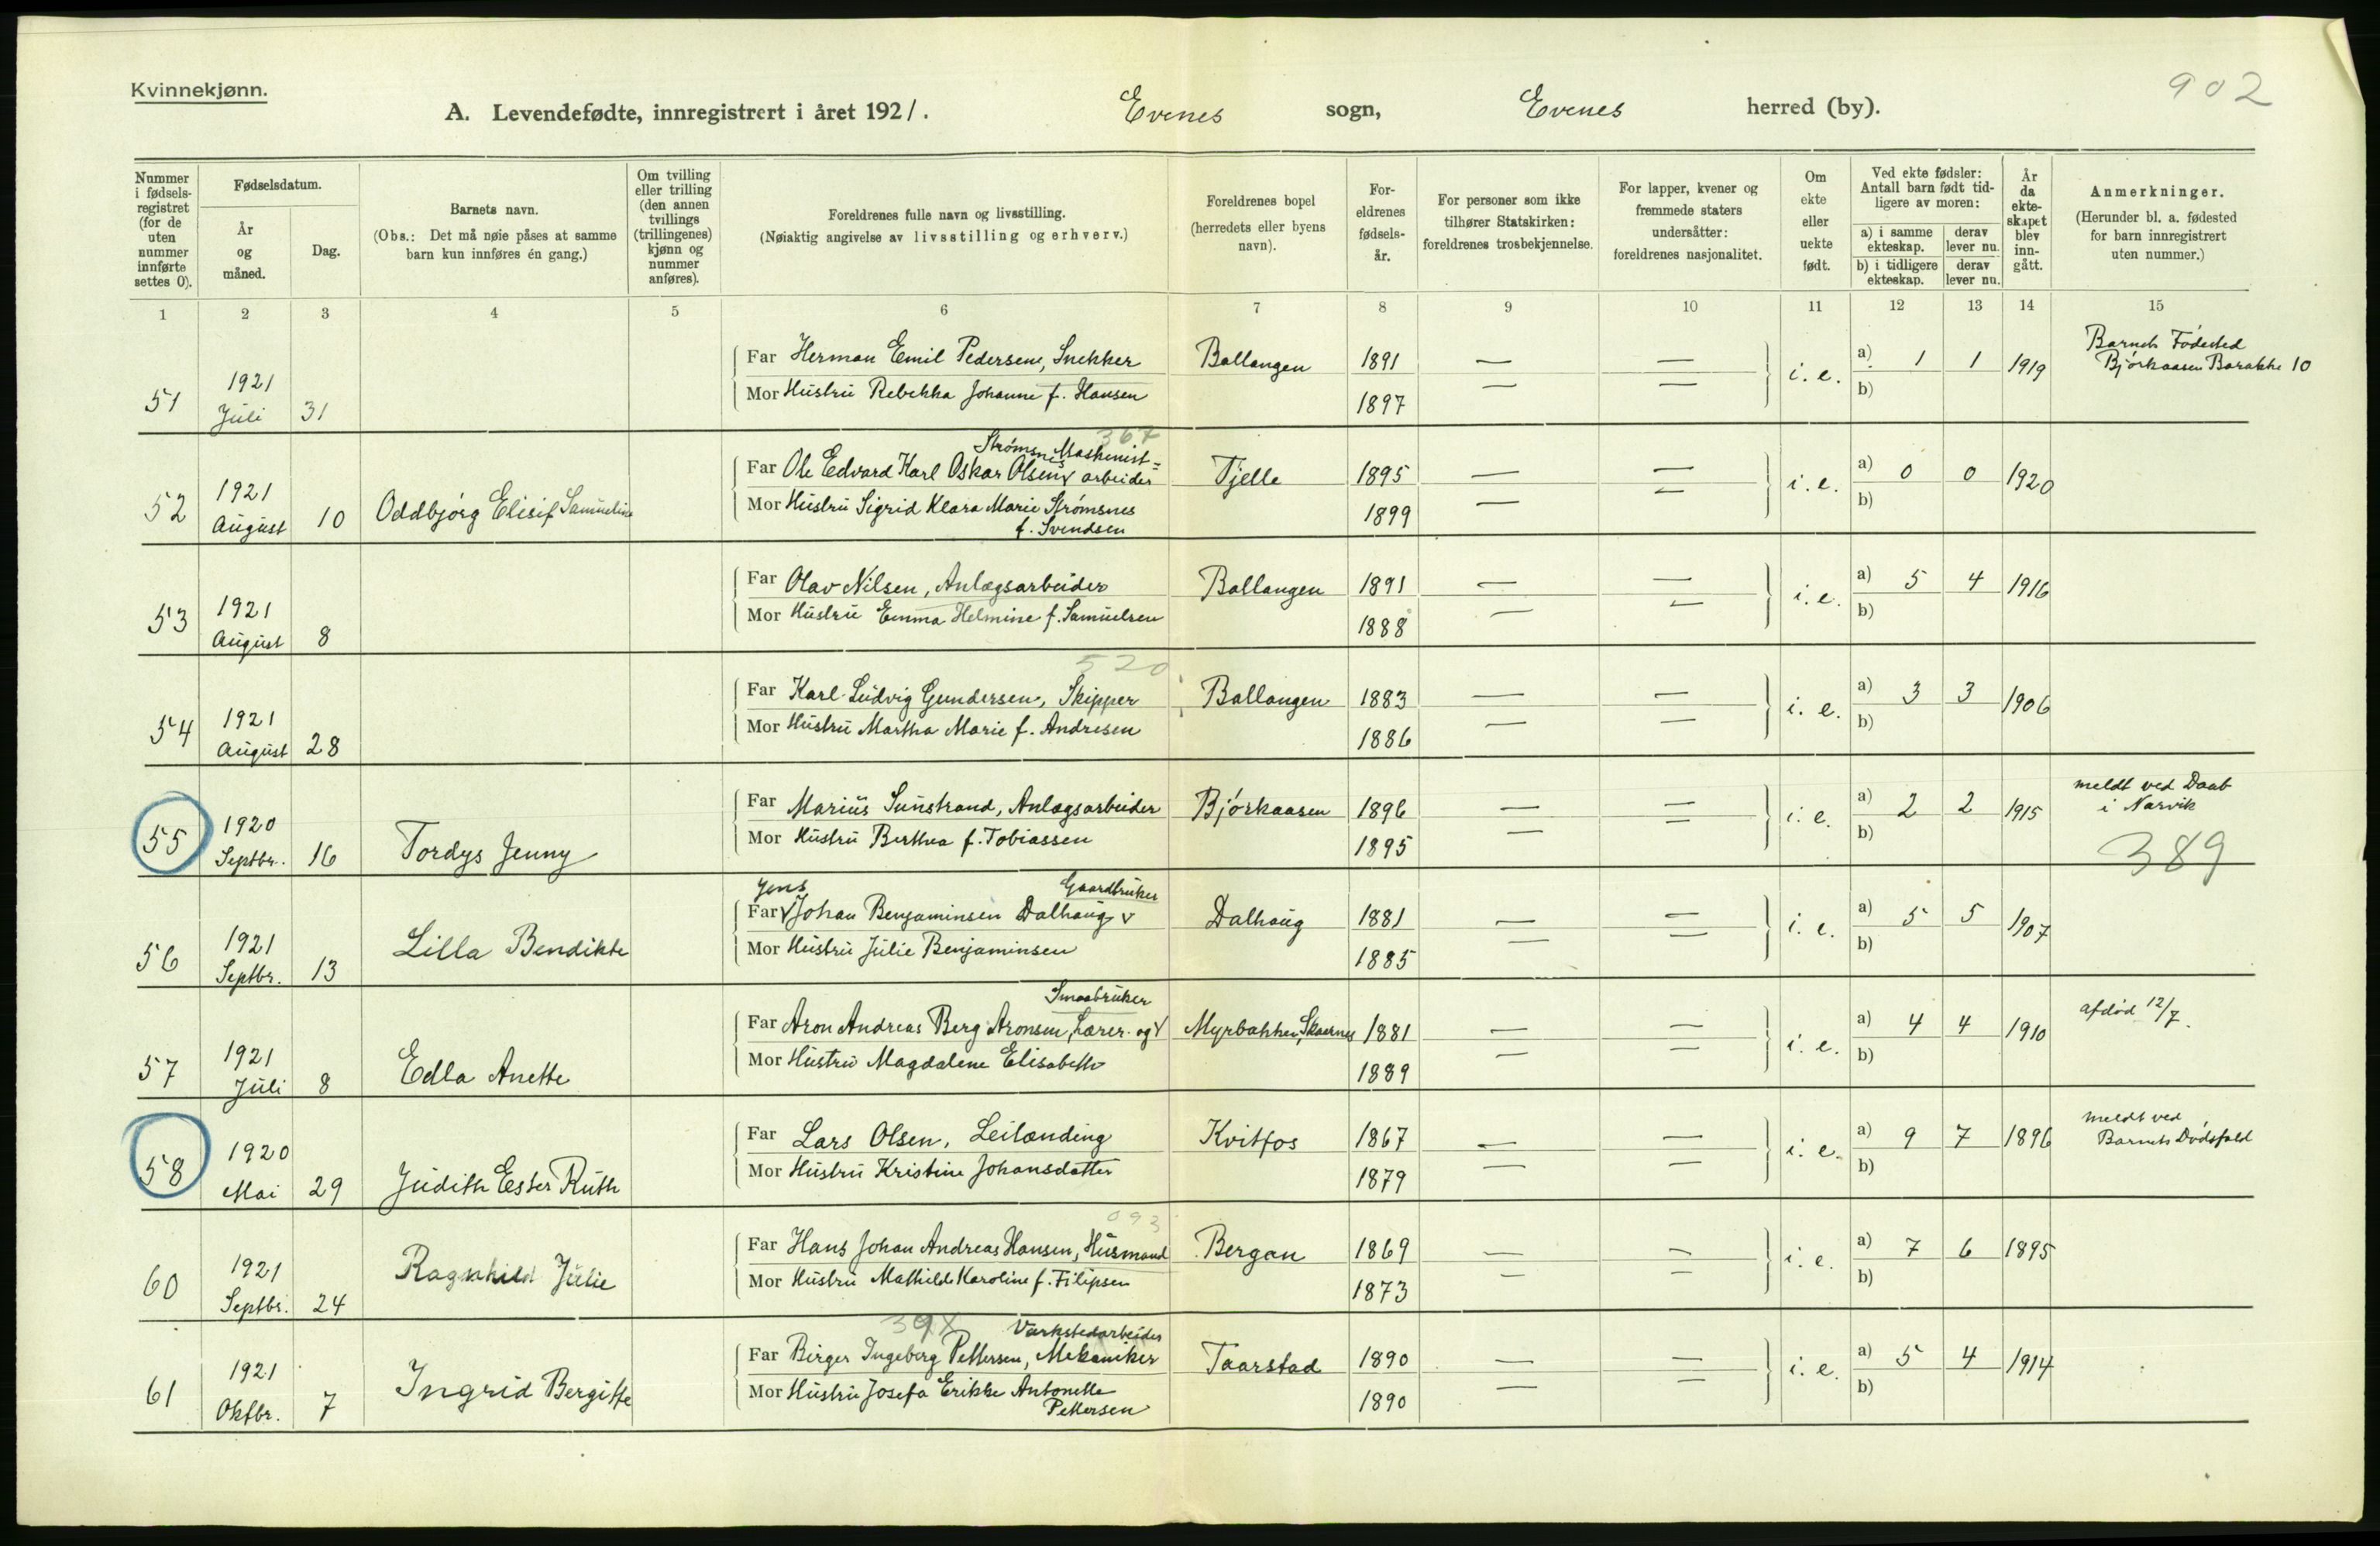 Kvinnekjønn.
902
A. Levendefødte, innregistrert i året 1921. Evenes sogn, Evenes herred (by).
Nummer i fødsels-registret (for de uten nummer innførte settes 0).
Fødselsdatum.
År og måned.
Dag.
Barnets navn.
(Obs.: Det må nøie påses at samme barn kun innføres én gang.)
Om tvilling eller trilling (den annen tvillings (trillingenes) kjønn og nummer anføres).
Foreldrenes fulle navn og livsstilling.
(Nøiaktig angivelse av livsstilling og erhverv.)
Foreldrenes bopel (herredets eller byens navn).
For-eldrenes fødsels-år.
For personer som ikke tilhører Statskirken: foreldrenes trosbekjennelse.
For lapper, kvener og fremmede staters undersåtter: foreldrenes nasjonalitet.
Om ekte eller uekte født.
Ved ekte fødsler: Antall barn født tid-ligere av moren:
a) i samme ekteskap. derav lever nu.
b) i tidligere ekteskap. derav lever nu.
År da ekte-skapet blev inn-gått.
Anmerkninger.
(Herunder bl. a. fødested for barn innregistrert uten nummer.)
1 2 3 4 5 6 7 8 9 10 11 12 13 14 15
51 1921 Juli 31
Far Herman Emil Pedersen, Snekker Ballangen 1891 — — i. e. a) 1 1 1919
Mor Hustru Rebekka Johanne f. Hansen 1897 — — b)
Barnets Fødested
Bjørkaasen Barakke 10
367
52 1921 August 10 Oddbjørg Elisif Samueline
Strømsnes Maskinist=
Far Ole Edvard Karl Oskar Olsen v arbeider Tjelle 1895 — — i. e. a) 0 0 1920
Mor Hustru Sigrid Klara Marie Strømsnes 1899 — — b)
f. Svendsen
53 1921 August 8
Far Olav Nilsen, Anlægsarbeider Ballangen 1891 — — i. e. a) 5 4 1916
Mor Hustru Emma Helmine f. Samuelsen 1888 — — b)
520
54 1921 August 28
Far Karl Ludvig Gundersen, Skipper Ballangen 1883 — — i. e. a) 3 3 1906
Mor Hustru Martha Marie f. Andresen 1886 — — b)
55 1920 Septbr. 16 Tordys Jenny
Far Marius Sunstrand, Anlagsarbeider Bjørkaasen 1896 — — i. e. a) 2 2 1915
Mor Hustru Berthea f. Tobiassen 1895 — — b)
meldt ved Daab
i Narvik
389
56 1921 Septbr. 13 Lilla Bendikte
Jens Gaardbruker
Far v Johan Benjaminsen Dalhaug v Dalhaug 1881 — — i. e. a) 5 5 1907
Mor Hustru Julie Benjaminsen 1885 — — b)
57 1921 Juli 8 Edla Anette
Smaabruker
Far Aron Andreas Berg Aronsen, Lærer og v Myrbakken, Skarnes 1881 — — i. e. a) 4 4 1910
Mor Hustru Magdalene Elisabeth 1889 — — b)
afdød 12/7.
58 1920 Mai 29 Judith Ester Ruth
Far Lars Olsen, Leilænding Kvitfos 1867 — — i. e. a) 9 7 1896
Mor Hustru Kristine Johansdatter 1879 — — b)
meldt ved
Barnets Dødsfald
093
60 1921 Septbr. 24 Ragnhild Julie
Far Hans Johan Andreas Hansen, Husmand Bergan 1869 — — i. e. a) 7 6 1895
Mor Hustru Mathilde Karoline f. Filipsen 1873 — — b)
61 1921 Oktbr. 7 Ingrid Bergitte
Værkstedarbeider
Far Birger Ingeberg Pettersen, Mekaniker Taarstad 1890 — — i. e. a) 5 4 1914
Mor Hustru Josefa Erikke Antonette 1890 — — b)
Pettersen